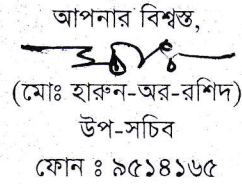 আপনার বিশ্বস্ত,
(মোঃ হারুন-অর-রশিদ)
উপ-সচিব
ফোন ঃ ৯৫১৪১৬৫